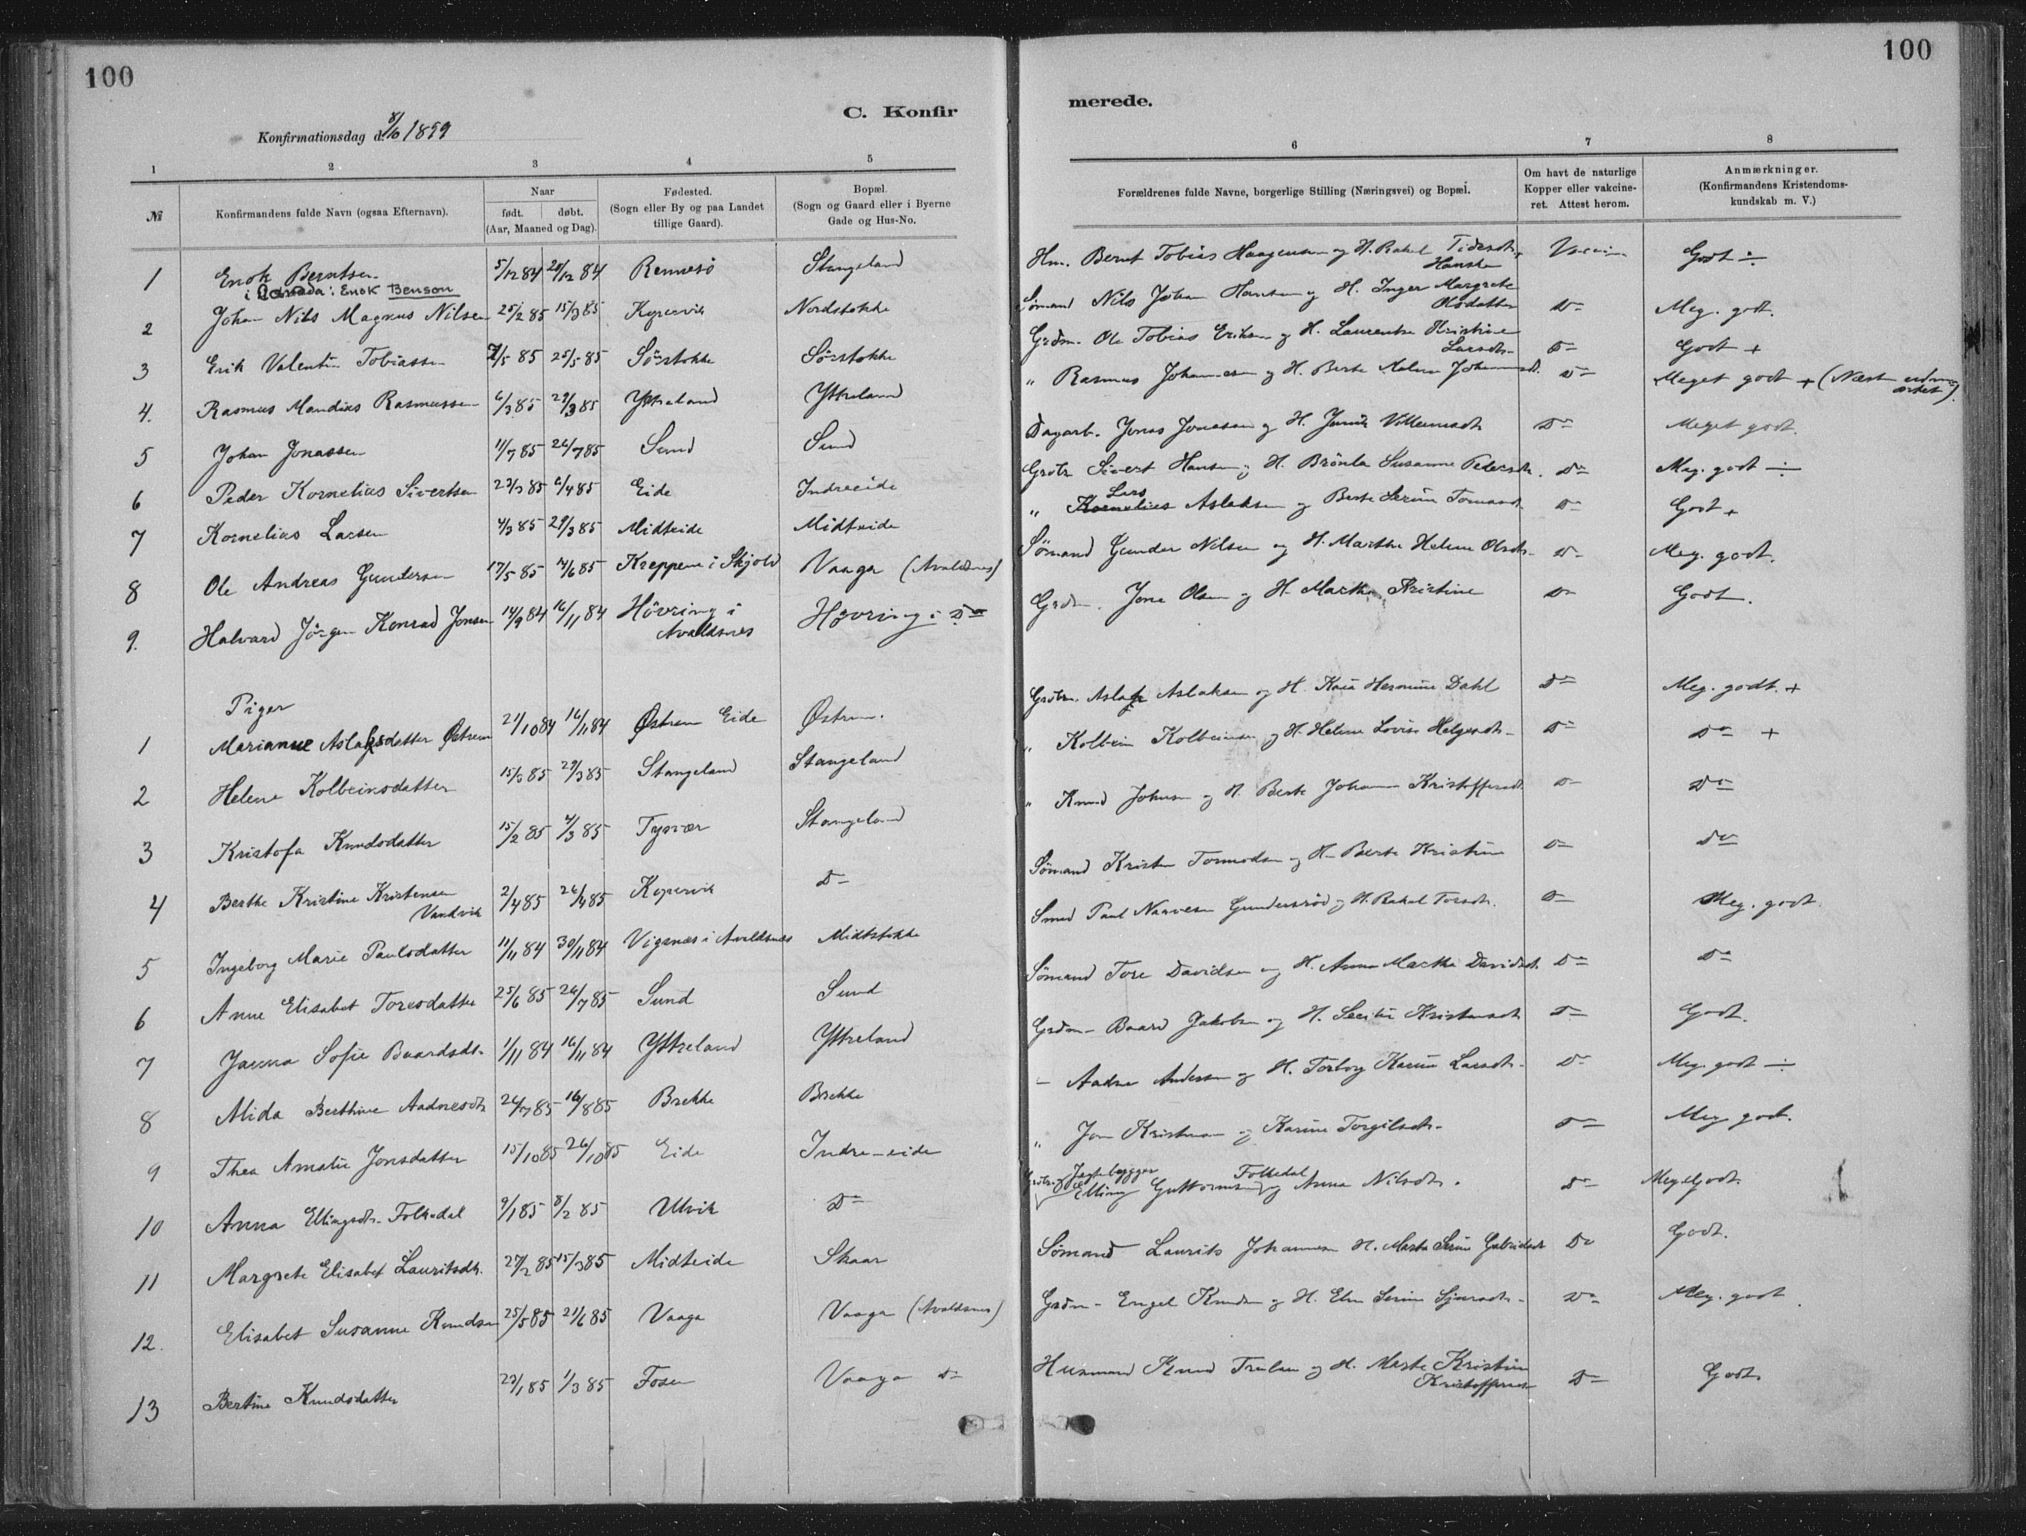 100
100
C. Konfir
merede.
Konfirmationsdag d. 8/10 1899
1 2 3 4 5 6 7 8
№
Konfirmandens fulde Navn (ogsaa Efternavn).
Naar
født. døbt.
(Aar, Maaned og Dag).
Fødested.
(Sogn eller By og paa Landet
tillige Gaard).
Bopæl.
(Sogn og Gaard eller i Byerne
Gade og Hus-No.
Forældrenes fulde Navne, borgerlige Stilling (Næringsvei) og Bopæl.
Om havt de naturlige
Kopper eller vakcine-
ret. Attest herom.
Anmærkninger.
(Konfirmandens Kristendoms-
kundskab m. V.)
1 Enok Berntsen 5/12 84 28/12 84 Rennesö Stangeland Hm. Bernt Tobias Haagensen og H. Rakel Godt ÷
i Canada: Enok Benson
2 Johan Nils Magnus Nilsen 25/2 85 15/3 85 Kopervik Nordstokke Sømand Nils Johan Hansen og H. Inger Margrete Olsdatter Do Meg. godt.
3 Erik Valentin Tobiassen 7/5 85 25/5 85 Sörstokke Sörstokke Grdm. Ole Tobias Eriksen og H. Laurentse Kristine Larsdtr Do Godt +
4. Rasmus Mandius Rasmussen 6/3 85 29/3 85 Yttreland Yttreland " Rasmus Johannesen og H. Berte Malene Do Meget godt + (Næst
5 Johan Jonassen 11/7 85 26/7 85 Sund Sund Dagarb. Jonas Jonassen og H. Do Meget godt.
6 Peder Kornelius Sivertsen 23/3 85 6/4 85 Eide Indreeide Grdbr. Sivert Hansen og H. Brönla Susanne Pedersdtr. Do Meg. godt ÷
7 Kornelius Larsen 4/3 85 29/3 85 Midteide Midteide " Lars Kornelius Aslaksen og Berte Serine Do Godt +
8 Ole Andreas Gundersen 17/5 85 14/6 85 Kreppene i Skjold Vaaga (Avaldsnes) Sömand Gunder Nilsen og H. Marthe Helene Olsdtr. Do Meg. godt.
9. Halvard Jörgen Konrad Jonsen 14/9 84 16/11 84 Hövring i Avaldsnes Hövring i Do Grdm. Jone Olsen og H. Marthe Kristine Do Godt.
Piger
1 Marianne Aslaksdatter Østrem 21/10 84 16/11 84 Østrem Eide Østrem. Grdbr. Aslak Aslaksen og H. Kaia Hermine Dahl Do Meg. godt. +
2 Helene Kolbeinsdatter 15/3 85 29/3 85 Stangeland Stangeland " Kolbein Kolbeinsen og H. Helene Lovise Helgesdtr. Do Do +
3 Kristofa Knudsdatter 15/2 85 4/3 85 Tysvær Stangeland " Knud Johnsen og H. Berte Johanna Kristoffersdtr. Do Do
4 Berthe Kristine Kristensen Vandvik 2/4 85 26/4 85 Kopervik Do Sömand Kristen Tormodsen og H. Berte Kristine Do Do
5 Ingeborg Marie Paulsdatter 11/11 84 30/11 84 Vigsnes i Avaldsnes Midtstokke Smed Paul Narvesen Gundersröd og H. Rakel Do Meg. godt.
6 Anne Elisabet Toresdatter 25/6 85 26/7 85 Sund Sund Sömand Tore Davidsen og H. Anna Marthe Davidsdtr. Do Do
7 Janna Sofie Baardsdtr. 1/11 84 16/11 84 Yttreland Yttreland Grdm. Baard Jakobsen og H. Secilie Kristensdtr. Do Godt.
8 Alida Berthine Aadnesdtr 26/7 85 16/8 85 Brekke Brekke – Aadne Andersen og H. Torborg Karine Larsdtr. Do Meg. godt ÷
9 Thea Amalie Jonsdatter 15/10 85 26/10 85 Eide Indre-eide " Jon Kristensen og Karine Torgilsdtr. Do Meg. godt.
10 Anna Ellingsdtr. Folkedal 9/1 85 8/2 85 Ulvik Do Jagtebygger Elling Guttormsen Folkedal og Anna Nilsdtr. Do Meg. godt.
11 Margrete Elisabet Lauritsdtr. 27/2 85 15/3 85 Midteide Skaar Sömand Laurits Johannesen H. Marta Serine Do Godt.
12. Elisabet Susanne Knudsen 25/5 85 21/6 85 Vaaga Vaaga (Avaldsnes) Grdm. Engel Knudsen og H. Elen Serine Do Meg. godt
13 Bertine Knudsdatter 23/1 85 1/3 85 Fosen Vaaga do Husmand Knud og H. Marte Kristine Kristoffersdtr Do Godt.